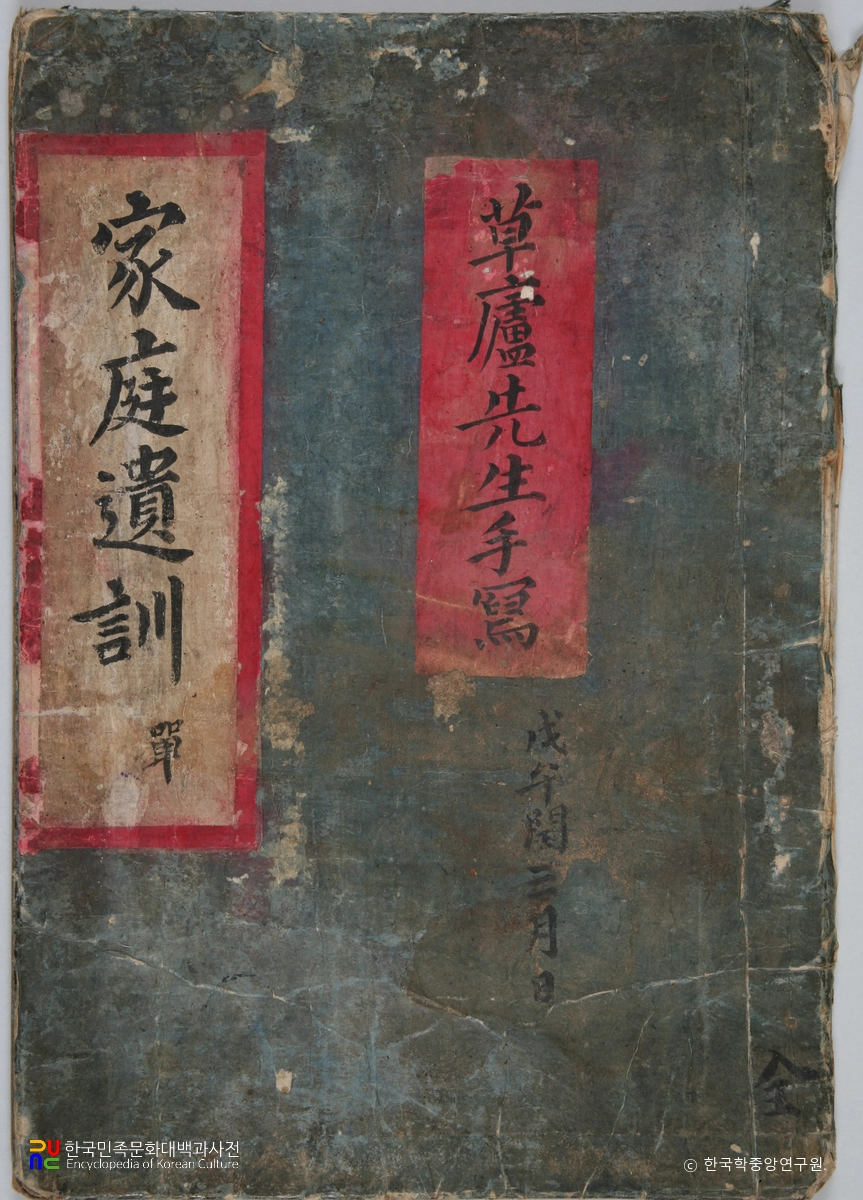 家庭遺訓 單
草廬先生手寫
戊午閏三月日
全
한국민족문화대백과사전
Encyclopedia of Korean Culture
ⓒ 한국학중앙연구원